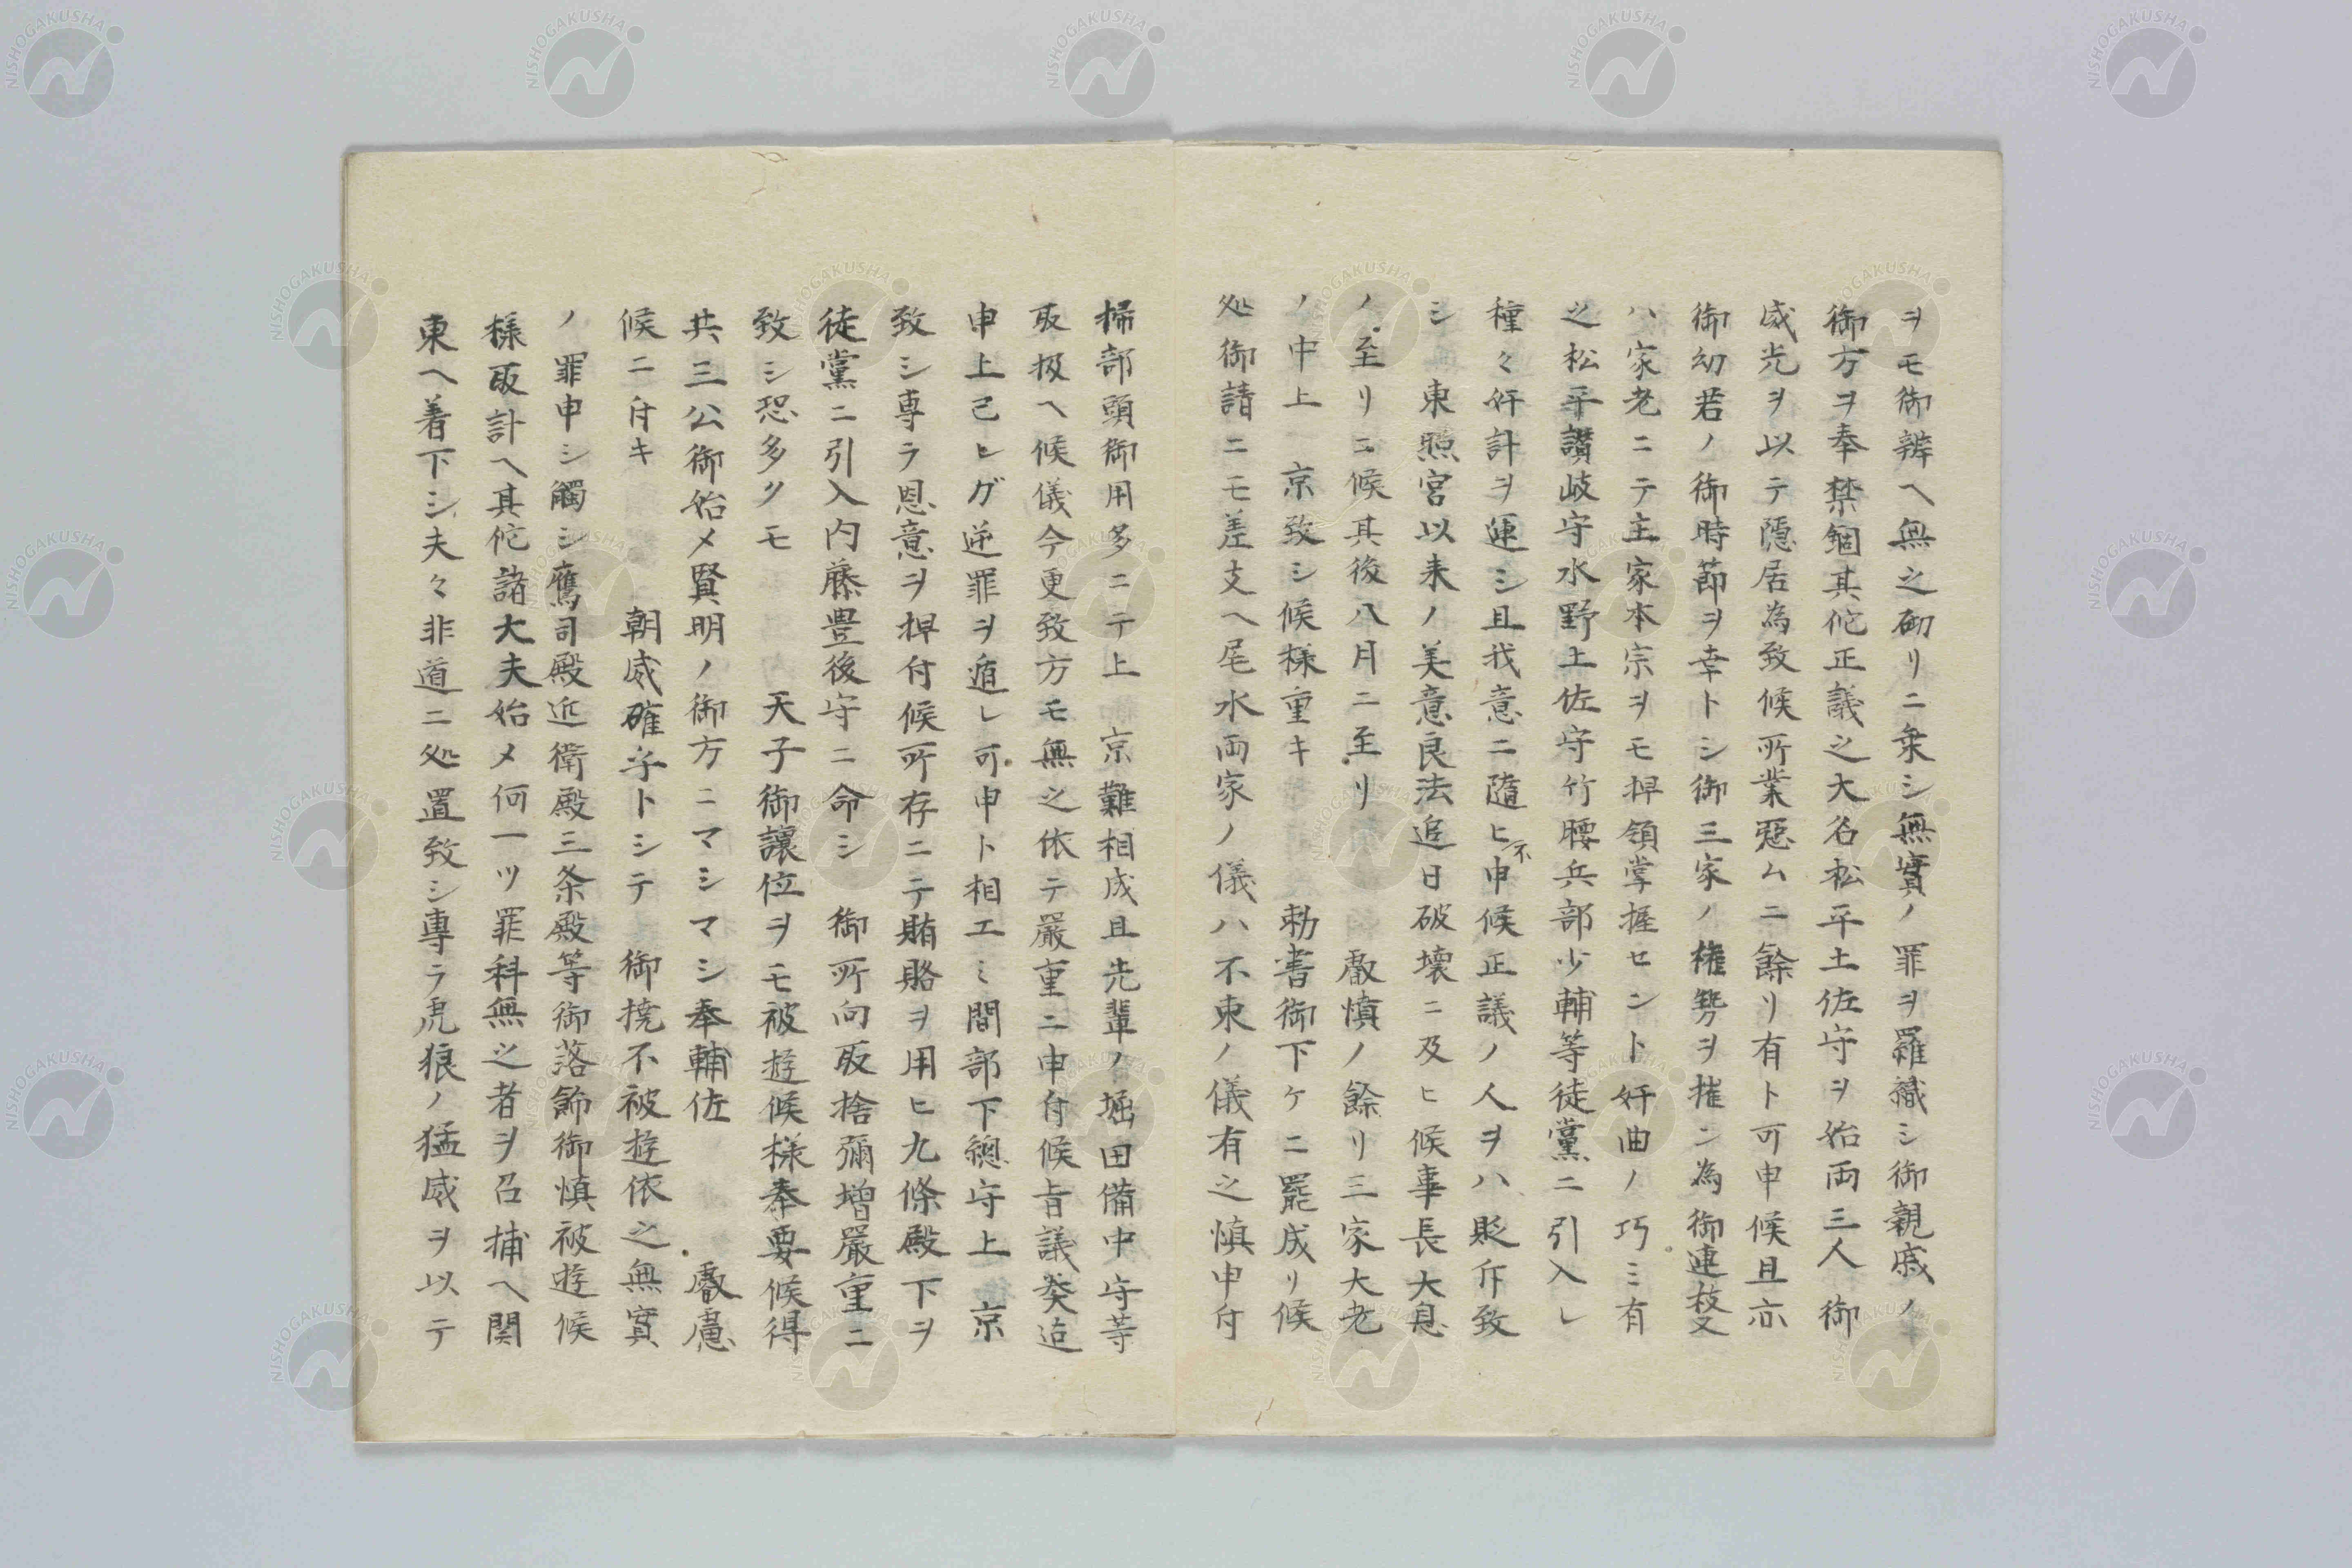 ヲモ御辨ヘ無之砌リニ乗シ無實ノ罪ヲ羅織シ御親戚ノ
御方ヲ奉禁錮其佗正議之大名松平土佐守ヲ始両三人御
威光ヲ以テ隠居為致候所業惡ムニ餘リ有ト可申候且亦
御幼若ノ御時節ヲ幸トシ御三家ノ権勢ヲ摧ン為御連枝又
ハ家老ニテ主家本宗ヲモ押領掌握セント奸曲ノ巧ミ有
之松平讃岐守水野土佐守竹腰兵部少輔等徒黨ニ引入レ
種々奸計ヲ運シ且我意ニ隨ヒ不申候正議ノ人ヲハ貶斥致
シ東照宮以来ノ美意良法追日破壊ニ及ヒ候事長大息
ノ至リニ候其後八月ニ至リ叡慎ノ餘リ三家大老
ノ中上京致シ候様重キ勅書御下ケニ罷成リ候
処御請ニモ差支ヘ尾水両家ノ儀ハ不束ノ儀有之慎申付
掃部頭御用多ニテ上京難相成且先輩ノ堀田備中守等
取扱ヘ候儀今更致方モ無之依テ嚴重ニ申付候旨議奏迠
申上己ヒガ逆罪ヲ遁レ可申ト相工ミ間部下總守上京
致シ専ラ恩意ヲ押付候所存ニテ賄賂ヲ用ヒ九條殿下ヲ
徒黨ニ引入内藤豊後守ニ命シ御所向取捨彌増嚴重ニ
致シ恐多クモ天子御譲位ヲモ被遊候様奉要候得
共三公御始メ賢明ノ御方ニマシマシ奉輔佐叡慮
候ニ付キ朝威確乎トシテ御撓不被遊依之無實
ノ罪申シ觸シ鷹司殿近衛殿三条殿等御落飾御慎被遊候
様取計ヘ其佗諸大夫始メ何一ツ罪科無之者ヲ召捕ヘ関
東ヘ着下シ夫々非道ニ処置致シ專ラ虎狼ノ猛威ヲ以テ
NISHOGAKUSHA